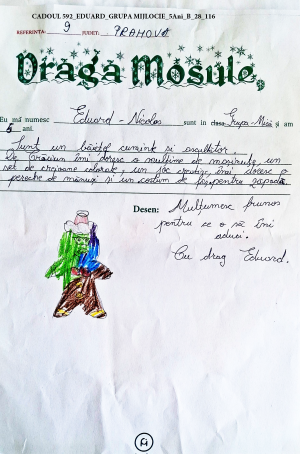 CADOUL 592_EDUARD_GRUPA MIJLOCIE_5Ani_B_28_116
REFERINTA: 9 JUDET: PRAHOVA
Draga Mosule,
Eu mă numesc Eduard - Nicolas sunt in clasa Grupa Mică și am
5 ani.
Sunt un băiețel cuminte și ascultător.
De Crăciun îmi doresc o mulțime de mașinuțe, un
set de creioane colorate, un joc creativ, îmi doresc o
pereche de mănuși și un costum de pentru zăpadă.
Desen: Mulțumesc frumos
pentru ce o să îmi
aduci.
Cu drag Eduard.